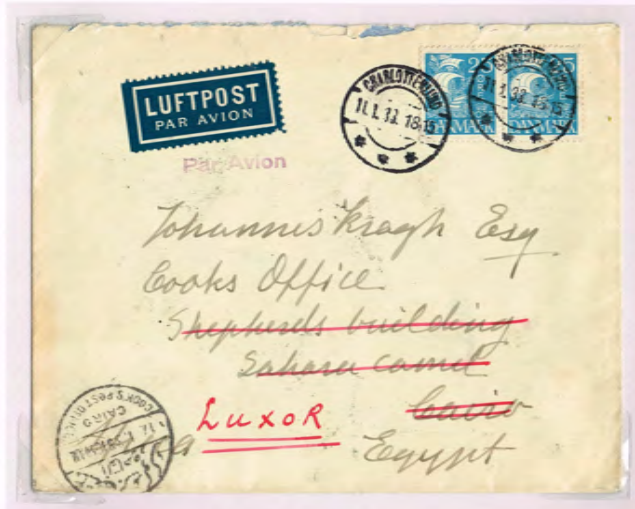 LUFTPOST
PAR AVION
Par Avion
CHARLOTTENLUND
11.1.33. 18-15
DANMARK
CHARLOTTENLUND
11.1.33. 18-15
DANMARK
Johannes Kragh Esq
Cooks Office
Shepherds building
Sahara camel
Cairo
LUXOR
Egypt
COOK'S POST OFFICE
CAIRO